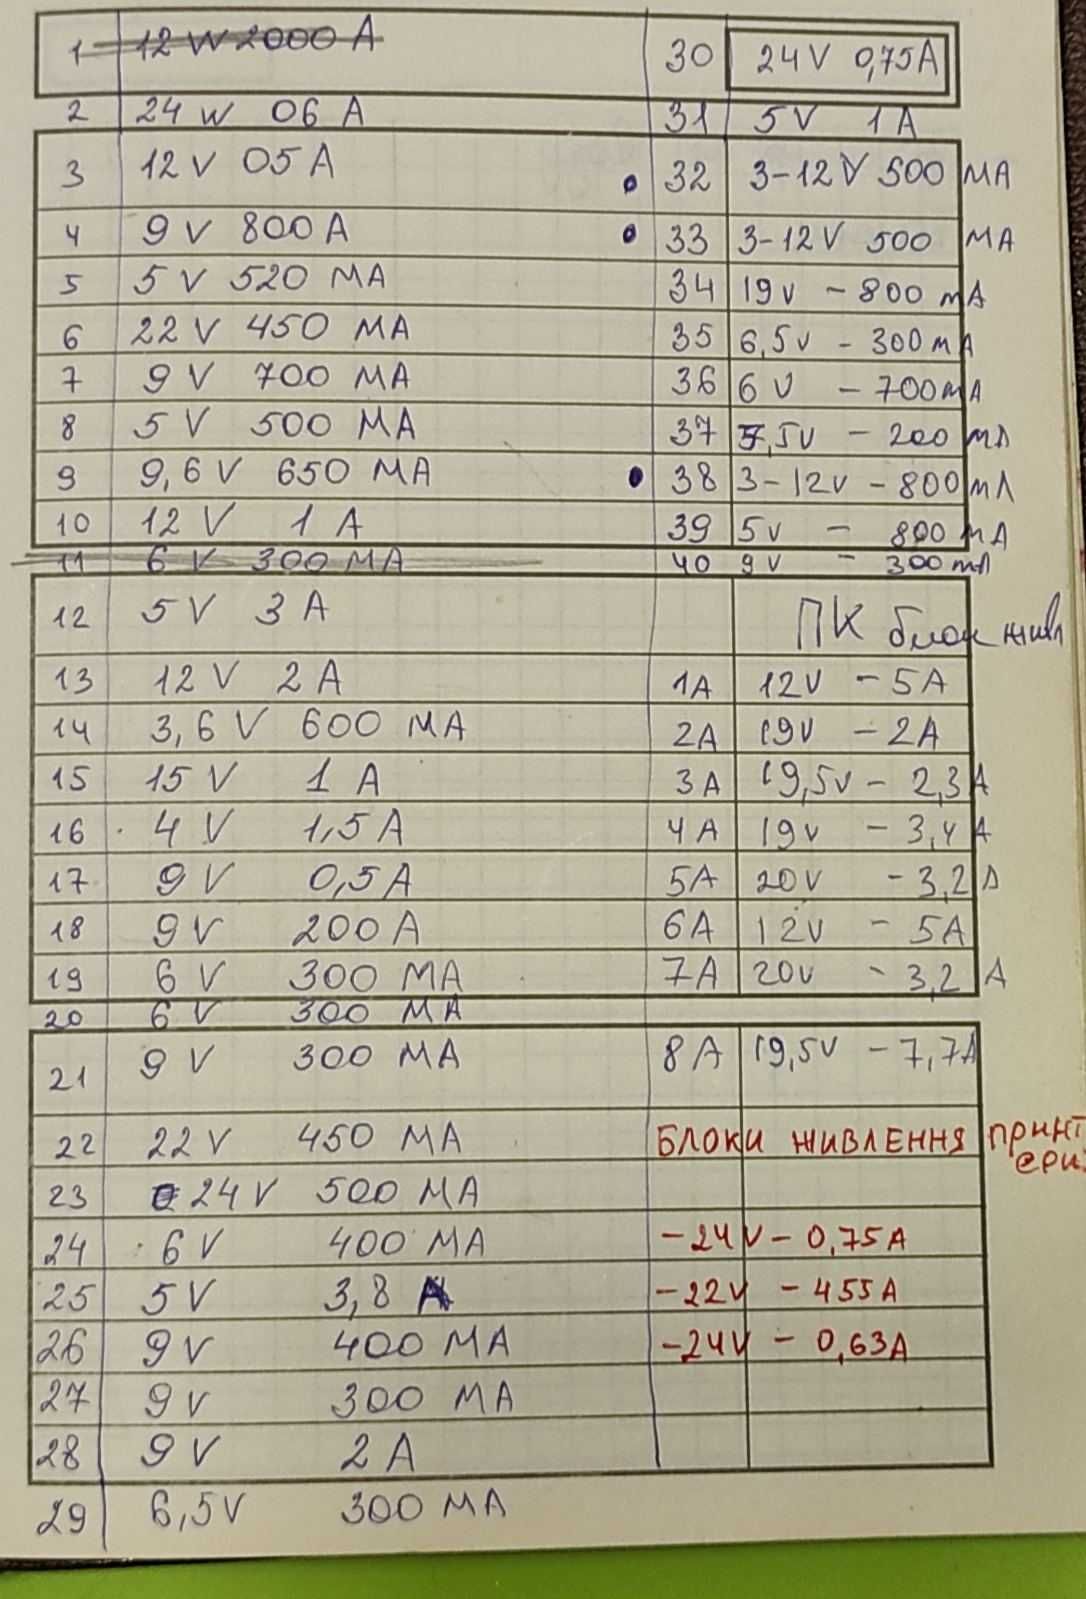 1 12 W 2000 A
2 24 W 06 A
3 12 V 05 A
4 9 V 800 A
5 5 V 520 MA
6 22 V 450 MA
7 9 V 700 MA
8 5 V 500 MA
9 9,6 V 650 MA
10 12 V 1 A
11 6 V 300 MA
12 5 V 3 A
13 12 V 2 A
14 3,6 V 600 MA
15 15 V 1 A
16 4 V 1,5 A
17 9 V 0,5 A
18 9 V 200 A
19 6 V 300 MA
20 6 V 300 MA
21 9 V 300 MA
22 22 V 450 MA
23 24 V 500 MA
24 6 V 400 MA
25 5 V 3,8 A
26 9 V 400 MA
27 9 V 300 MA
28 9 V 2 A
29 6,5V 300 MA
30 24V 0,75A
31 5V 1A
32 3-12V 500 MA
33 3-12V 500 MA
34 19V - 800 mA
35 6,5V - 300 mA
36 6V - 700 mA
37 7,5V - 200 mA
38 3-12V - 800 mA
39 5V - 800 mA
40 9V - 300 mA
ПК блок живл
1A 12V - 5A
2A 19V - 2A
3A 19,5V - 2,3A
4A 19V - 3,4A
5A 20V - 3,2A
6A 12V - 5A
7A 20V - 3,2 A
8A 19,5V - 7,7A
БЛОКИ ЖИВЛЕННЯ ПРИНТ
ери
-24V - 0,75A
-22V - 455A
-24V - 0,63A